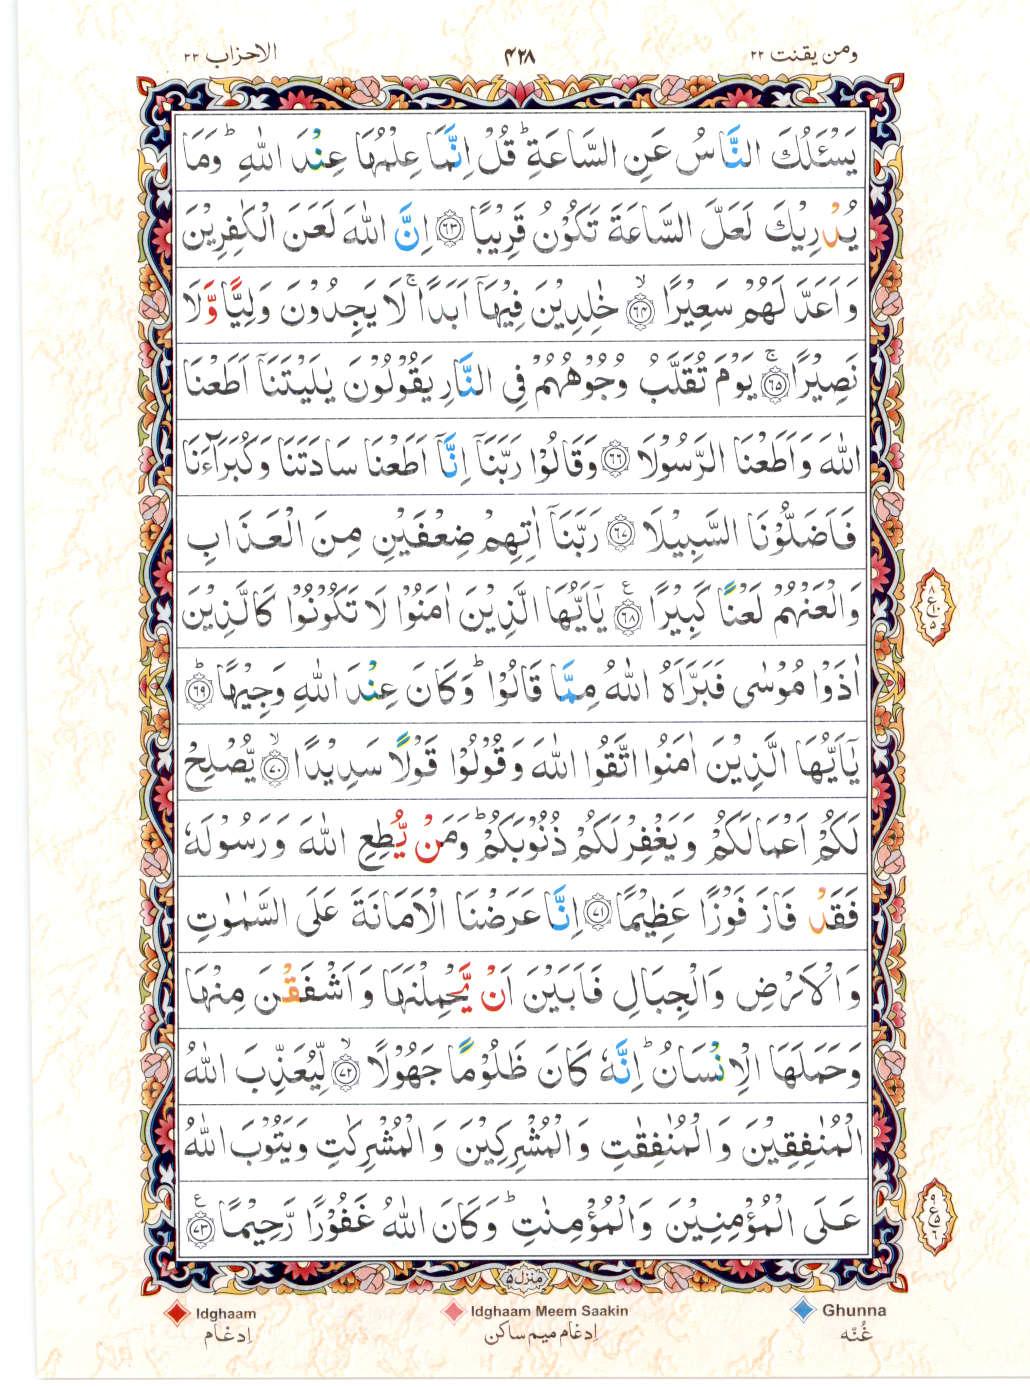 ومن یقنت ۲۲ ۴۲۸ الاحزاب ۳۳
يَسْـَٔلُكَ النَّاسُ عَنِ السَّاعَةِ ؕ قُلْ اِنَّمَا عِلْمُهَا عِنْدَ اللّٰهِ ؕ وَمَا
يُدْرِيْكَ لَعَلَّ السَّاعَةَ تَكُوْنُ قَرِيْبًا ﴿۶۳﴾ اِنَّ اللّٰهَ لَعَنَ الْكٰفِرِيْنَ
وَاَعَدَّ لَهُمْ سَعِيْرًا ۙ﴿۶۴﴾ خٰلِدِيْنَ فِيْهَاۤ اَبَدًا ۚ لَا يَجِدُوْنَ وَلِيًّا وَّلَا
نَصِيْرًا ۚ﴿۶۵﴾ يَوْمَ تُقَلَّبُ وُجُوْهُهُمْ فِي النَّارِ يَقُوْلُوْنَ يٰلَيْتَنَاۤ اَطَعْنَا
اللّٰهَ وَاَطَعْنَا الرَّسُوْلَا ﴿۶۶﴾ وَقَالُوْا رَبَّنَاۤ اِنَّاۤ اَطَعْنَا سَادَتَنَا وَكُبَرَآءَنَا
فَاَضَلُّوْنَا السَّبِيْلَا ﴿۶۷﴾ رَبَّنَاۤ اٰتِهِمْ ضِعْفَيْنِ مِنَ الْعَذَابِ
وَالْعَنْهُمْ لَعْنًا كَبِيْرًا ﴿۶۸﴾ع يٰۤاَيُّهَا الَّذِيْنَ اٰمَنُوْا لَا تَكُوْنُوْا كَالَّذِيْنَ
۸ ع ۱۰ ۵
اٰذَوْا مُوْسٰى فَبَرَّاَهُ اللّٰهُ مِمَّا قَالُوْا ؕ وَكَانَ عِنْدَ اللّٰهِ وَجِيْهًا ؕ﴿۶۹﴾
يٰۤاَيُّهَا الَّذِيْنَ اٰمَنُوا اتَّقُوا اللّٰهَ وَقُوْلُوْا قَوْلًا سَدِيْدًا ۙ﴿۷۰﴾ يُّصْلِحْ
لَكُمْ اَعْمَالَكُمْ وَيَغْفِرْ لَكُمْ ذُنُوْبَكُمْ ؕ وَمَنْ يُّطِعِ اللّٰهَ وَرَسُوْلَهٗ
فَقَدْ فَازَ فَوْزًا عَظِيْمًا ﴿۷۱﴾ اِنَّا عَرَضْنَا الْاَمَانَةَ عَلَى السَّمٰوٰتِ
وَالْاَرْضِ وَالْجِبَالِ فَاَبَيْنَ اَنْ يَّحْمِلْنَهَا وَاَشْفَقْنَ مِنْهَا
وَحَمَلَهَا الْاِنْسَانُ ؕ اِنَّهٗ كَانَ ظَلُوْمًا جَهُوْلًا ۙ﴿۷۲﴾ لِّيُعَذِّبَ اللّٰهُ
الْمُنٰفِقِيْنَ وَالْمُنٰفِقٰتِ وَالْمُشْرِكِيْنَ وَالْمُشْرِكٰتِ وَيَتُوْبَ اللّٰهُ
عَلَى الْمُؤْمِنِيْنَ وَالْمُؤْمِنٰتِ ؕ وَكَانَ اللّٰهُ غَفُوْرًا رَّحِيْمًا ﴿۷۳﴾ع
۹ ع ۵ ۶
منزل ۵
Idghaam Idghaam Meem Saakin Ghunna
اِدغام اِدغام میم ساکن غُنّه